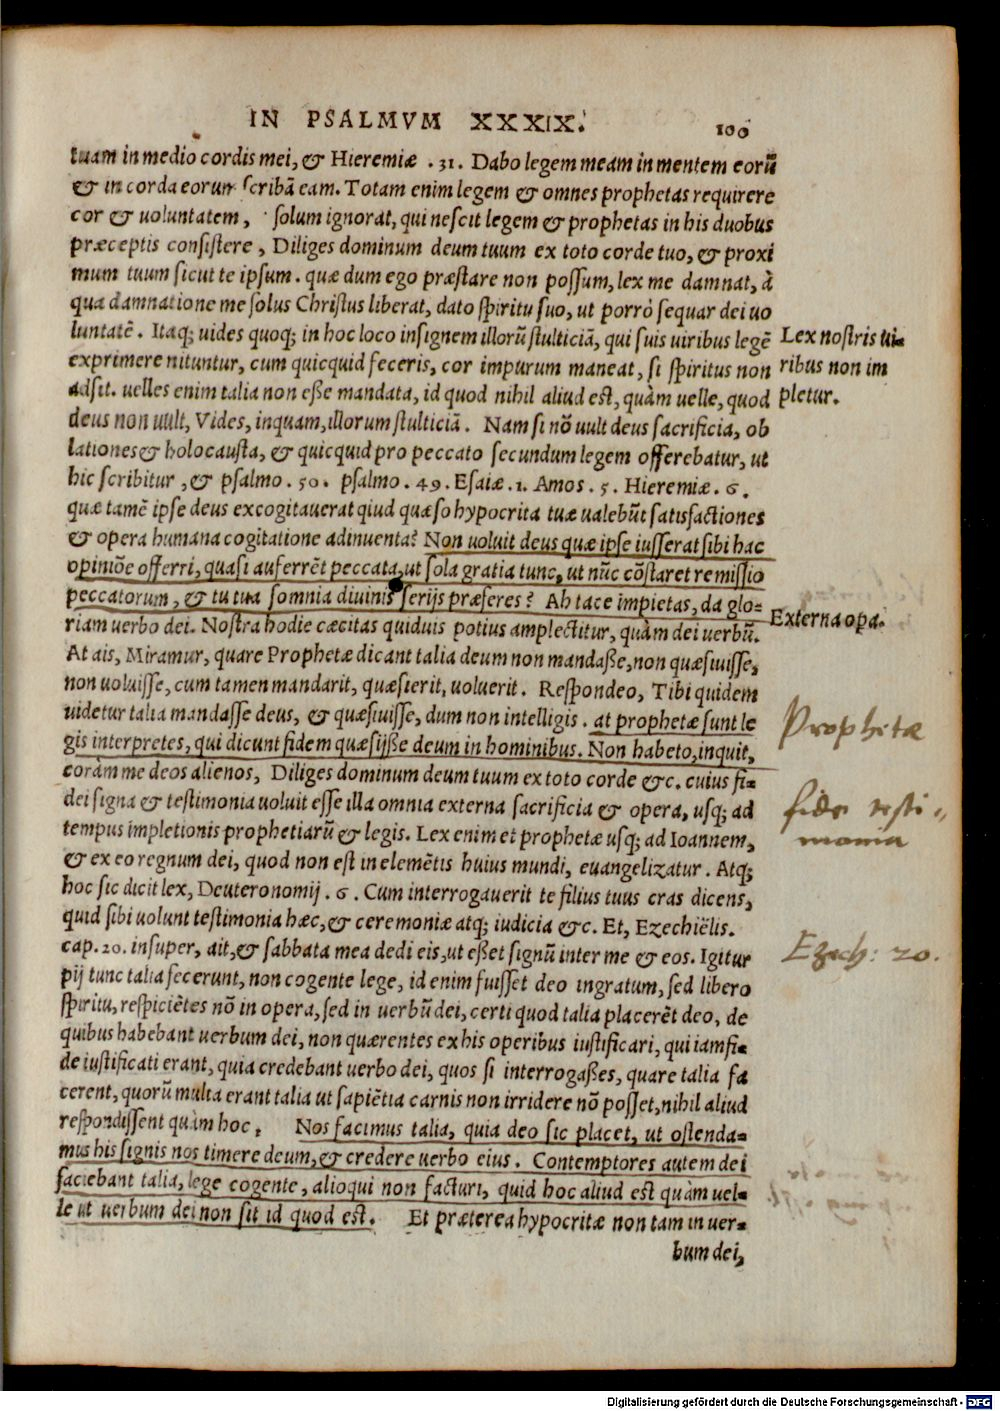 IN PSALMVM XXXIX. 100
tuam in medio cordis mei, & Hieremiæ .31. Dabo legem meam in mentem eorũ
& in corda eorum scribã eam. Totam enim legem & omnes prophetas requirere
cor & uoluntatem, solum ignorat, qui nescit legem & prophetas in his duobus
præceptis consistere, Diliges dominum deum tuum ex toto corde tuo, & proxi
mum tuum sicut te ipsum. quæ dum ego præstare non possum, lex me damnat, à
qua damnatione me solus Christus liberat, dato spiritu suo, ut porrò sequar dei uo
luntatẽ. Itaq; uides quoq; in hoc loco insignem illorũ stulticiã, qui suis uiribus legẽ
exprimere nituntur, cum quicquid feceris, cor impurum maneat, si spiritus non
adsit. uelles enim talia non eße mandata, id quod nihil aliud est, quàm uelle, quod
deus non uult, Vides, inquam, illorum stulticiã. Nam si nõ uult deus sacrificia, ob
lationes & holocausta, & quicquid pro peccato secundum legem offerebatur, ut
hic scribitur, & psalmo. 50. psalmo. 49. Esaiæ. 1. Amos. 5. Hieremiæ. 6.
quæ tamẽ ipse deus excogitauerat qiud quæso hypocrita tuæ ualebũt satisfactiones
& opera humana cogitatione adinuenta? Non uoluit deus quæ ipse iusserat sibi hac
opiniõe offerri, quasi auferrẽt peccata, ut sola gratia tunc, ut nũc cõstaret remissio
peccatorum, & tu tua somnia diuinis serijs præferes? Ah tace impietas, da glo=
riam uerbo dei. Nostra hodie cæcitas quiduis potius amplectitur, quàm dei uerbũ.
At ais, Miramur, quare Prophetæ dicant talia deum non mandaße, non quæsiuisse,
non uoluisse, cum tamen mandarit, quæsierit, uoluerit. Respondeo, Tibi quidem
uidetur talia mandasse deus, & quæsiuisse, dum non intelligis. at prophetæ sunt le
gis interpretes, qui dicunt fidem quæsijße deum in hominibus. Non habeto, inquit,
coràm me deos alienos, Diliges dominum deum tuum ex toto corde &c. cuius fi=
dei signa & testimonia uoluit esse illa omnia externa sacrificia & opera, usq; ad
tempus impletionis prophetiarũ & legis. Lex enim et prophetæ usq; ad Ioannem,
& ex eo regnum dei, quod non est in elemẽtis huius mundi, euangelizatur. Atq;
hoc sic dicit lex, Deuteronomij. 6. Cum interrogauerit te filius tuus cras dicens,
quid sibi uolunt testimonia hæc, & ceremoniæ atq; iudicia &c. Et, Ezechiëlis.
cap. 20. insuper, ait, & sabbata mea dedi eis, ut eßet signũ inter me & eos. Igitur
pij tunc talia fecerunt, non cogente lege, id enim fuisset deo ingratum, sed libero
spiritu, respiciẽtes nõ in opera, sed in uerbũ dei, certi quod talia placerẽt deo, de
quibus habebant uerbum dei, non quærentes ex his operibus iustificari, qui iam fi=
de iustificati erant, quia credebant uerbo dei, quos si interrogaßes, quare talia fa
cerent, quorũ multa erant talia ut sapiẽtia carnis non irridere nõ posset, nihil aliud
respondissent quàm hoc, Nos facimus talia, quia deo sic placet, ut ostenda=
mus his signis nos timere deum, & credere uerbo eius. Contemptores autem dei
faciebant talia, lege cogente, alioqui non facturi, quid hoc aliud est quàm uel=
le ut uerbum dei non sit id quod est. Et præterea hypocritæ non tam in uer=
bum dei,
Lex nostris ui=
ribus non im
pletur.
Externa opa.
Prophetæ
fidei testi=
monia
Ezech: 20.
Digitalisierung gefördert durch die Deutsche Forschungsgemeinschaft - DFG